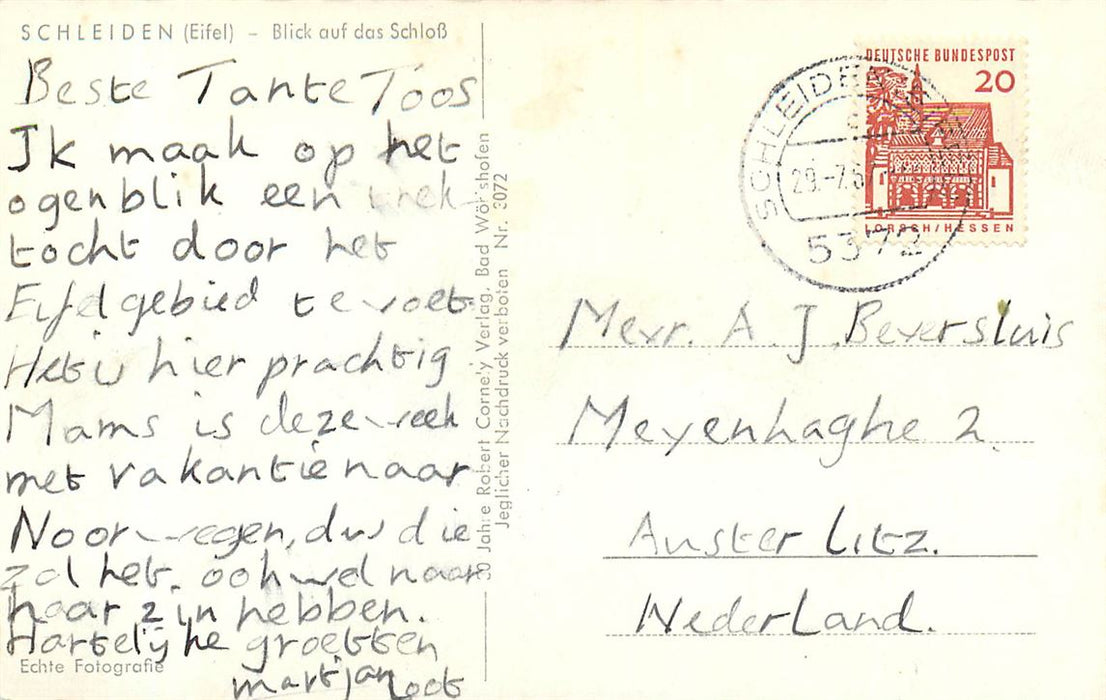 SCHLEIDEN (Eifel) – Blick auf das Schloß
Beste Tante Toos
Ik maak op het
ogenblik een trek
tocht door het
Eifelgebied te voet
Het is hier prachtig
Mams is deze week
met vakantie naar
Noorwegen, dus die
zal het ook wel naar
haar zin hebben.
Hartelijke groetten
martjan Loot
Echte Fotografie
50 Jahre Robert Cornely Verlag, Bad Wörishofen
Jeglicher Nachdruck verboten Nr. 3072
DEUTSCHE BUNDESPOST
20
LORSCH/HESSEN
SCHLEIDEN
29.-7.67
5372
Mevr. A J Beversluis
Meyenhaghe 2
Austerlitz.
Nederland.